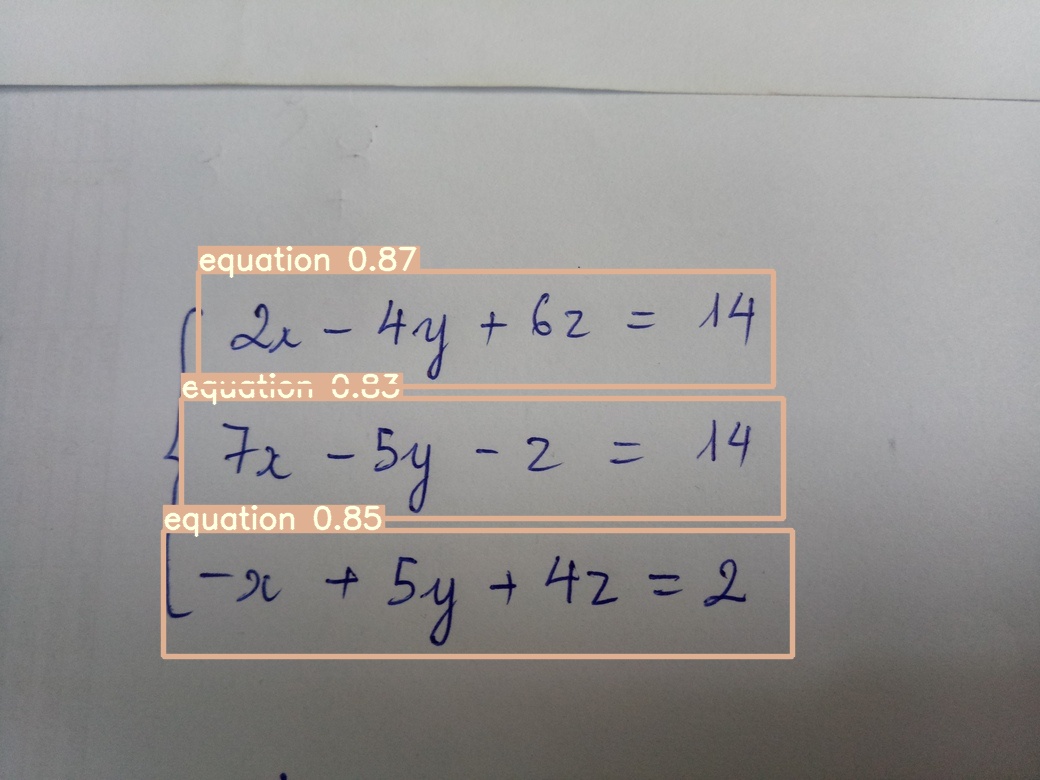 equation 0.87
2x - 4y + 6z = 14
equation 0.83
7x - 5y - z = 14
equation 0.85
-x + 5y + 4z = 2